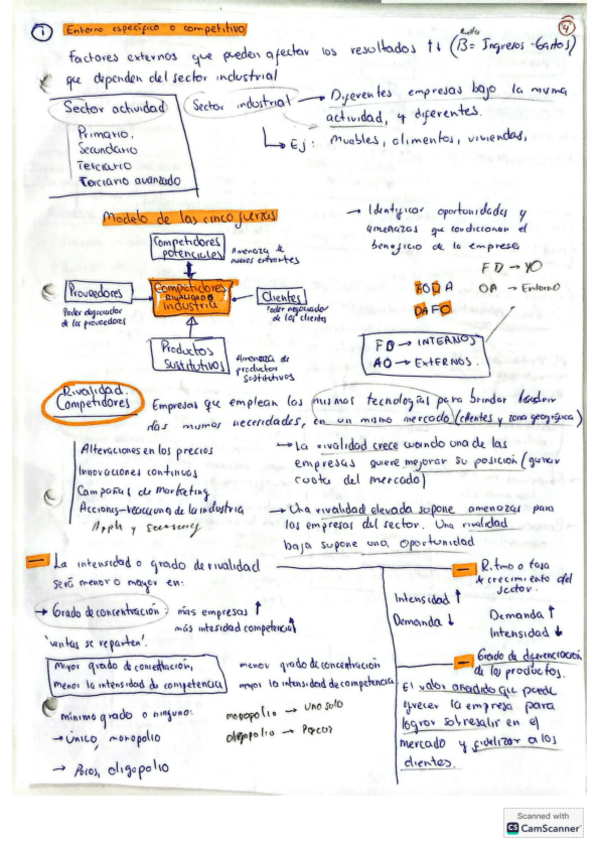 1 Entorno específico o competitivo
4
Factores externos que pueden afectar los resultados ↑↓ (B = Ingresos - Gastos)
que dependen del sector industrial
Sector actividad
Primario.
Secundario
Terciario
Terciario avanzado
Sector industrial → Diferentes empresas bajo la misma
actividad, y diferentes.
↳ Ej: muebles, alimentos, viviendas,
Modelo de las cinco fuerzas
→ Identificar oportunidades y
amenazas que condicionan el
beneficio de la empresa
Competidores
potenciales
Amenaza de
nuevos entrantes
Proveedores
Poder negociador
de los proveedores
Competidores
RIVALIDAD
Industria
Clientes
Poder negociador
de los clientes
Productos
Sustitutivos
Amenaza de
productos
sustitutivos
FD → YO
FODA
OA → Entorno
DAFO
FD → INTERNOS
AO → EXTERNOS.
Rivalidad.
Competidores
Empresas que emplean las mismas tecnologías para brindar
las mismas necesidades, en un mismo mercado (clientes y zona geográfica)
Alteraciones en los precios
Innovaciones continuas
Campañas de Marketing
Acciones-reacciones de la industria
→ La rivalidad crece cuando una de las
empresas quiere mejorar su posición (ganar
cuota del mercado)
→ Una rivalidad elevada supone amenazas para
las empresas del sector. Una rivalidad
baja supone una oportunidad
— La intensidad o grado de rivalidad
será menor o mayor en:
→ Grado de concentración: más empresas ↑
más intesidad competencia↑
'ventas se reparten'.
Mayor grado de concentración,
menor la intensidad de competencia
menor grado de concentración
mayor la intensidad de competencia
mínimo grado o ninguno:
→ único, monopolio
→ Pocos, oligopolio
monopolio → uno solo
oligopolio → Pocos
— Ritmo o tasa
de crecimiento del
sector.
Intensidad ↑
Demanda ↓
Demanda ↑
Intensidad ↓
— Grado de diferenciación
de los productos.
El valor añadido que puede
ofrecer la empresa para
lograr sobresalir en el
mercado y fidelizar a los
clientes.
Scanned with
CS CamScanner